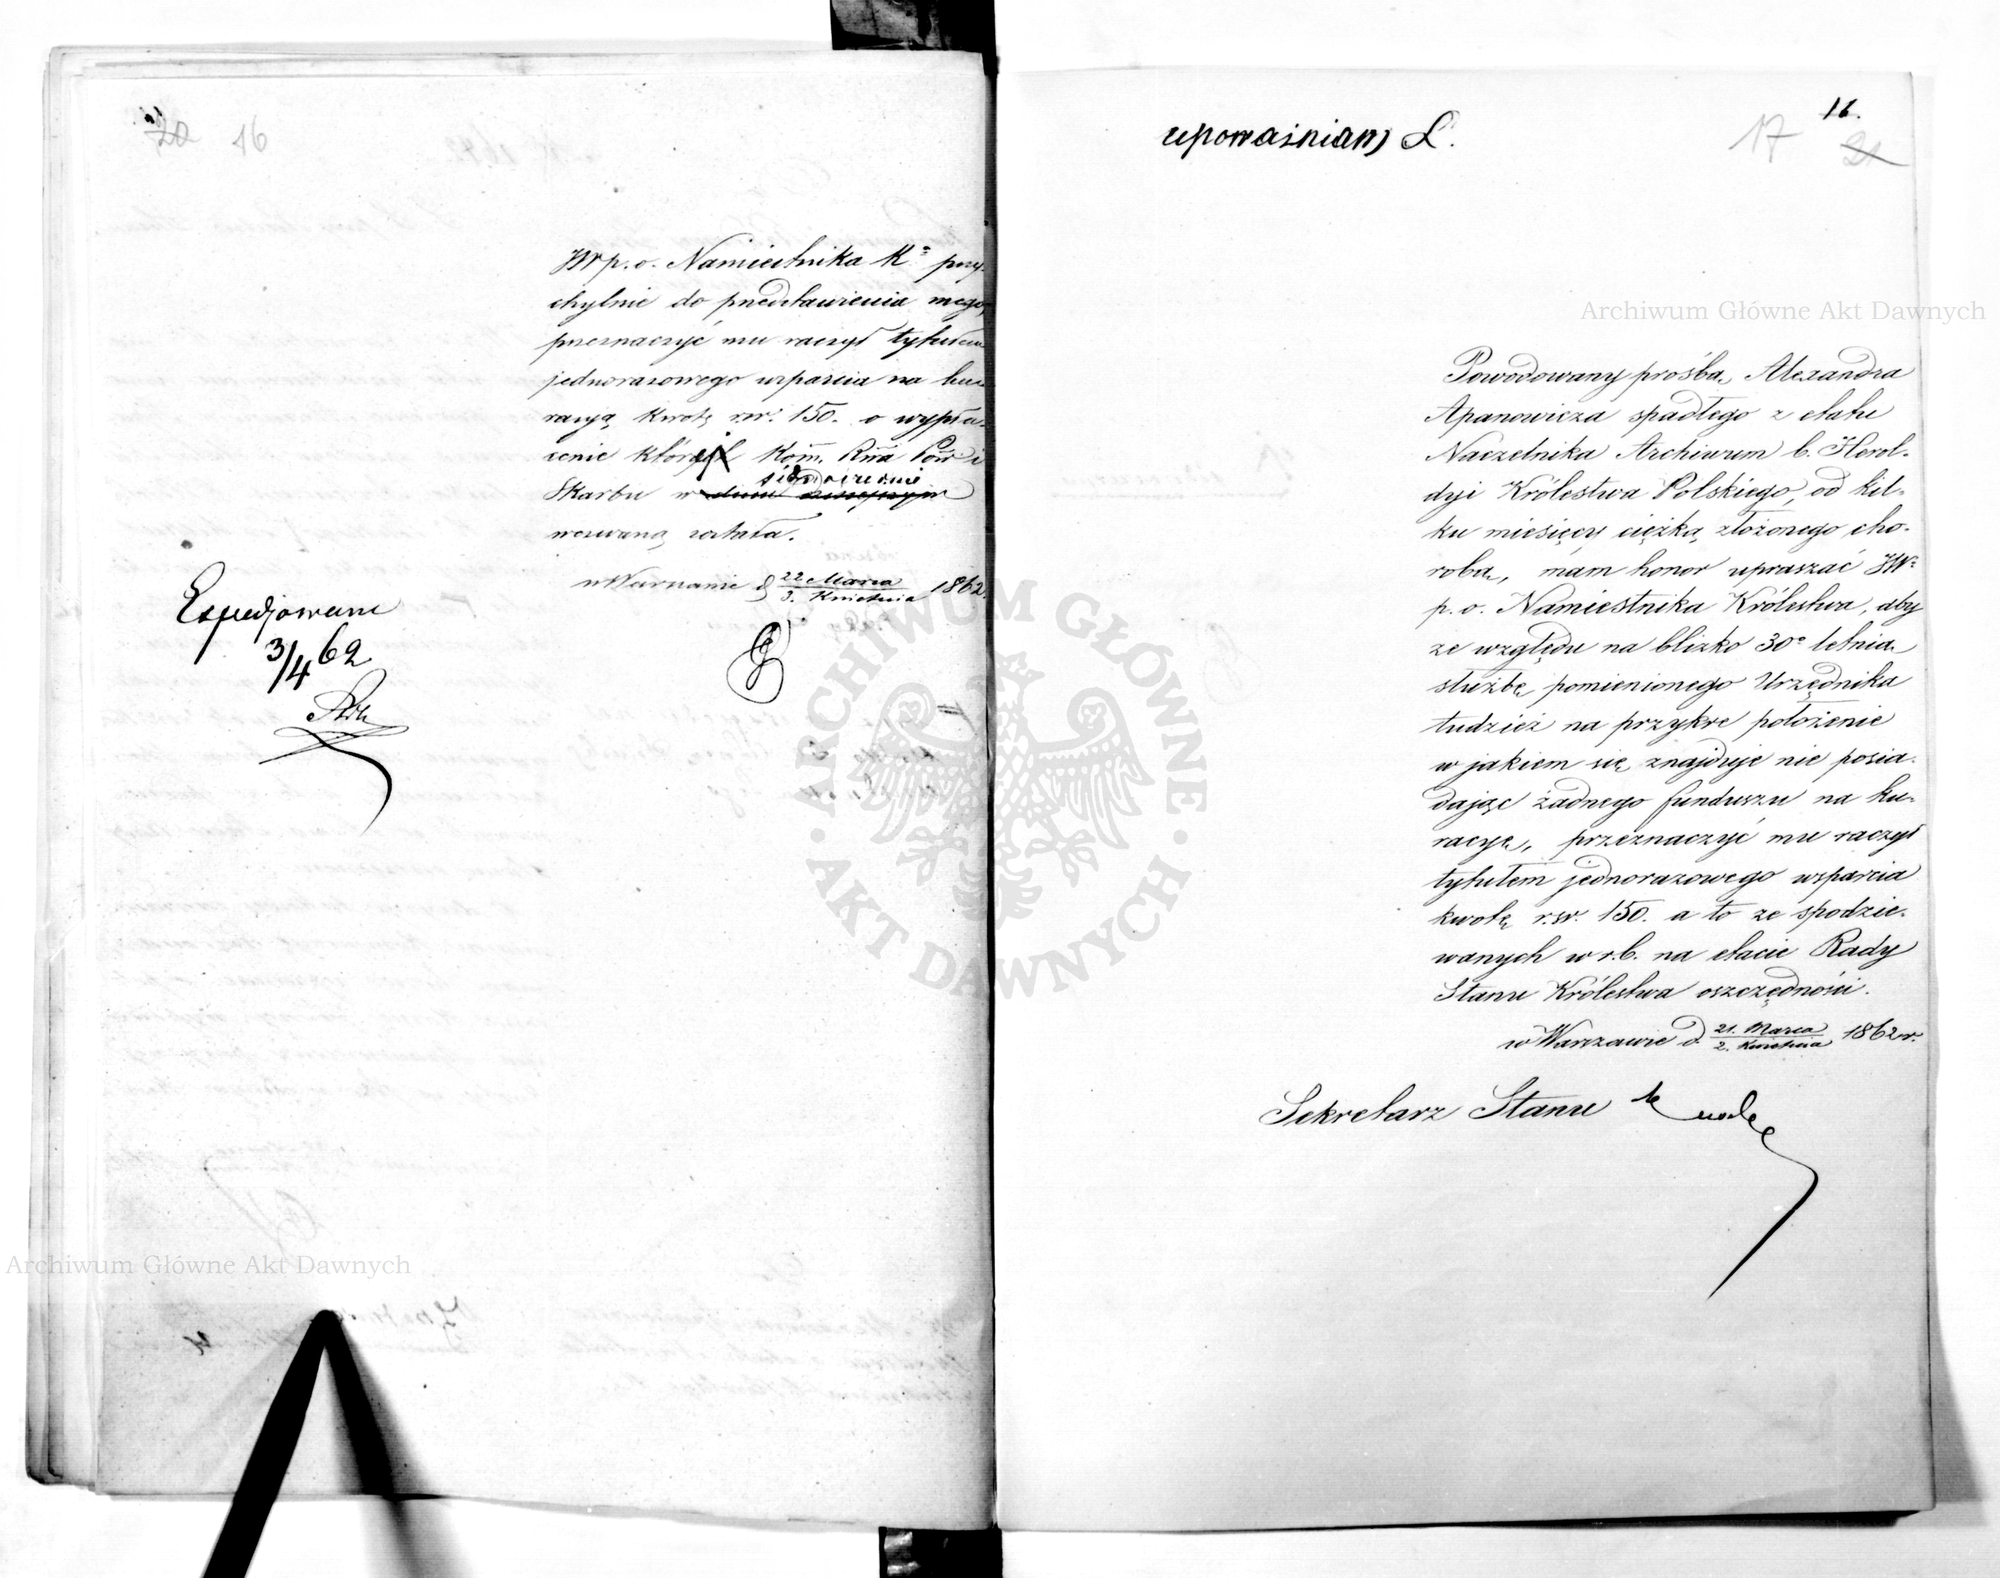 20 16
JW p. o. Namiestnika Kr. przy-
chylnie do przedstawienia mego,
przeznaczyć mu raczył tytułem
jednorazowego wsparcia na ku-
racyą kwotę rsr. 150. o wypła-
cenie której Kom. Rzą Przy i
Skarbu w dniu dzisiejszym
jednocześnie
wezwaną została.
w Warszawie d. 22 Marca / 3. Kwietnia 1862.
Expedjowano
3/4 62
16.
17 21
upoważniam L.
Powodowany prośbą Alexandra
Apanowicza spadłego z etatu
Naczelnika Archiwum b. Herol-
dyi Królestwa Polskiego, od kil-
ku miesięcy ciężką złożonego cho-
robą, mam honor upraszać JW.
p. o. Namiestnika Królestwa, aby
ze względu na blizko 30o letnią
służbę pomienionego Urzędnika
tudzież na przykre położenie
w jakiem się znajduje nie posia-
dając żadnego funduszu na ku-
racyę, przeznaczyć mu raczył
tytułem jednorazowego wsparcia
kwotę r.sr. 150. a to ze spodzie-
wanych w r.b. na etacie Rady
Stanu Królestwa oszczędności.
w Warszawie d. 21. Marca / 2. Kwietnia 1862 r.
Sekretarz Stanu
Archiwum Główne Akt Dawnych
Archiwum Główne Akt Dawnych
ARCHIWUM GŁÓWNE
· AKT DAWNYCH ·